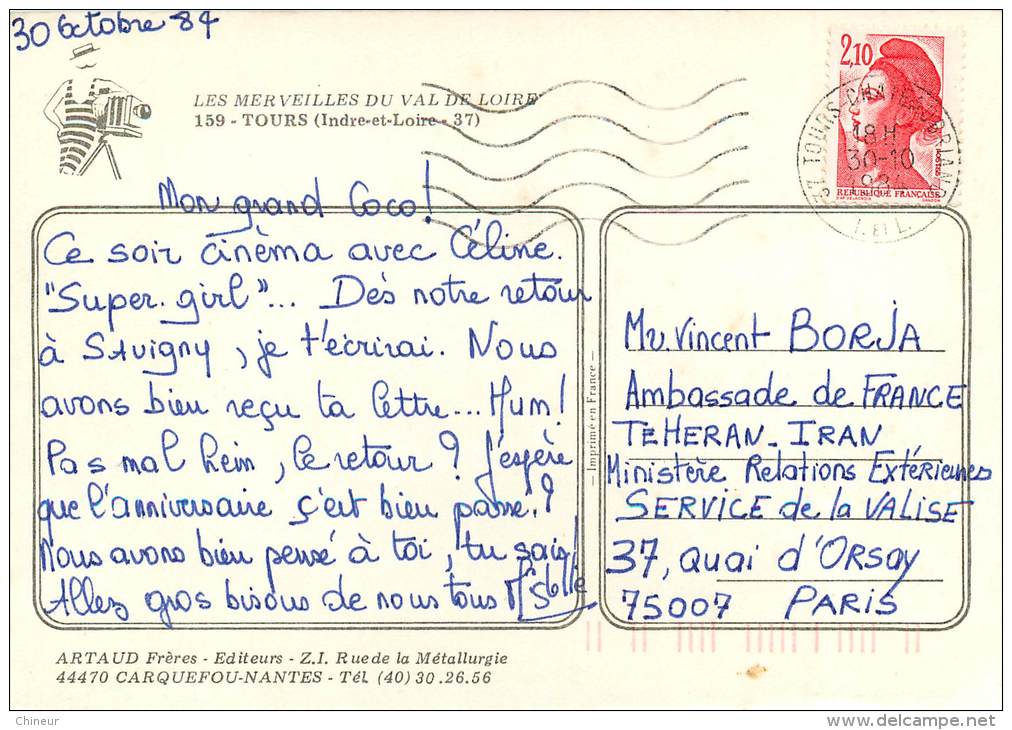 30 Octobre 84
LES MERVEILLES DU VAL DE LOIRE
159 - TOURS (Indre-et-Loire - 37)
2,10
REPUBLIQUE FRANÇAISE
37 TOURS
18H
30-10
I. ET L.
Mon grand Coco!
Ce soir cinèma avec Céline.
"Super. girl"... Dès notre retour
à SAvigny, je t'écrirai. Nous
avons bien reçu ta lettre... Hum!
Pas mal hein, le retour ? J'espère
que l'anniversaire ç'est bien passé.?
Nous avons bien pensé à toi, tu sais!
Allez gros bisous de nous tous
- Imprimé en France -
Mr. Vincent BORJA
Ambassade de FRANCE
TEHERAN - IRAN
Ministère Relations Extérieures
SERVICE de la VALISE
37, Quai d'ORSAY
75007 PARIS
ARTAUD Frères - Editeurs - Z.I. Rue de la Métallurgie
44470 CARQUEFOU-NANTES - Tél. (40) 30.26.56
Chineur
delcampe.net